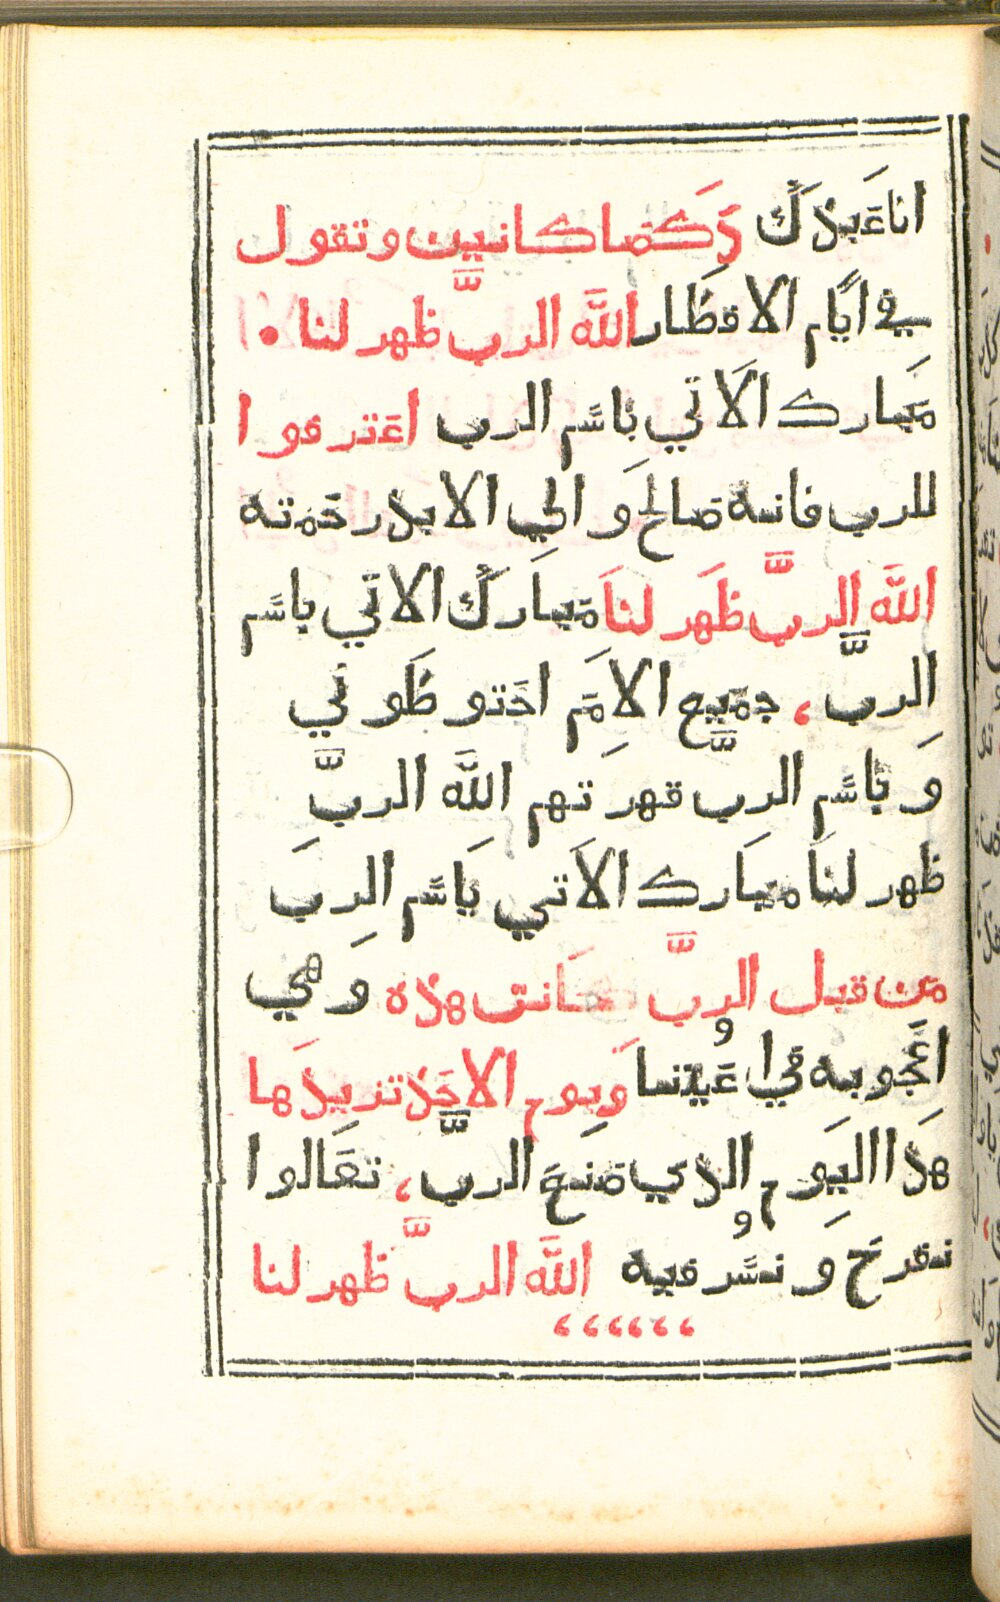 انا عَبدك رَكَضا كانين وتقول
في ايَّام الافطَار اللَّه الربّ ظهر لنا •
مَبارك الاَتي باسَّم الرب اعَترفوا
للرب فانه صَالح وَالي الابد رحَمته
اللَّه الربّ ظَهر لنَا مَبارَكَ الاتي باسَّم
الربّ ، جميع الامَم احَتوظَوني
وَباسَّم الرب قهرتهم اللَّه الربّ
ظهر لنَا مبَارك الاَتي بَاسَّم الرب
من قبل الربّ كَانت هذه وَهي
اعَجوبه في اعَيُننا وَيوم الاحَد تزيدَها
هَذا اليَوم الذي صَنعَ الربّ ، تعَالوا
نفرحَ ونسَُّر فيه اللَّه الربّ ظهر لنا
،،،،،،